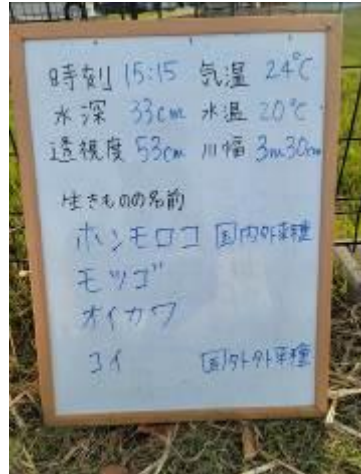 時刻 15:15 気温 24℃
水深 33cm 水温 20℃
透視度 53cm 川幅 3m30cm
生きものの名前
ホンモロコ 国内外来種
モツゴ
オイカワ
コイ 国外外来種